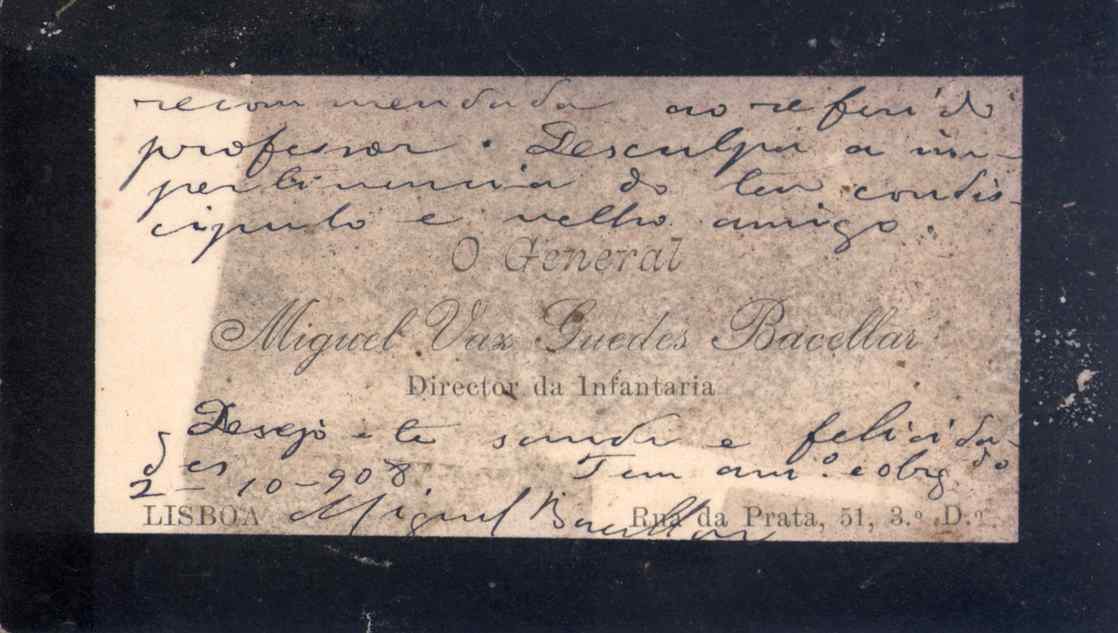 recommendada ao referido
professor. Desculpa a im-
pertinencia do teu condis-
cipulo e velho amigo.
O General
Miguel Vaz Guedes Bacellar
Director da Infantaria
Desejo-te saude e felicida-
des
Teu am.º e obrg.do
2-10-908
Miguel Bacellar
LISBOA
Rua da Prata, 51, 3.º D.